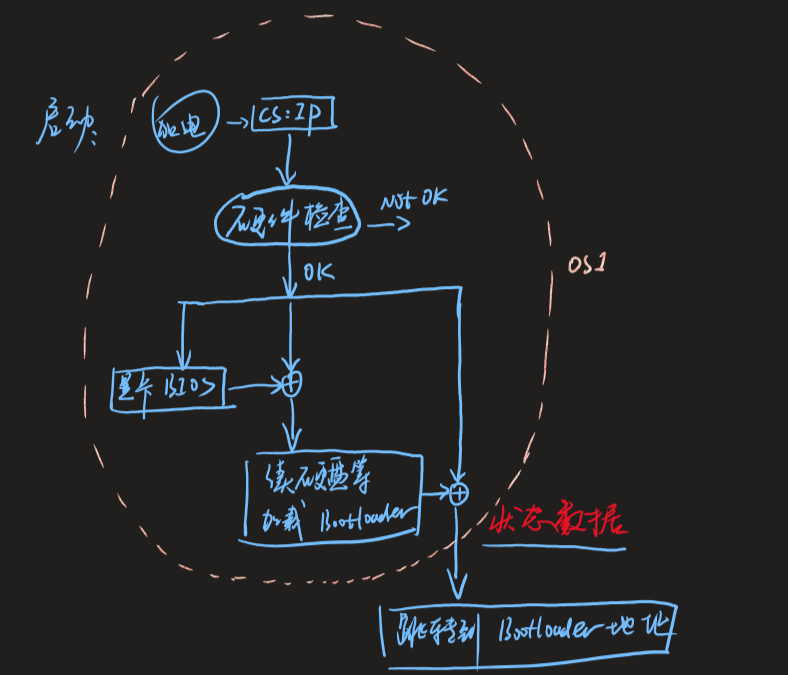 启动:
加电
CS:IP
硬件检查
Not OK
OK
OS1
显卡 BIOS
读硬盘等
加载 Bootloader
状态数据
跳转到 Bootloader 地址